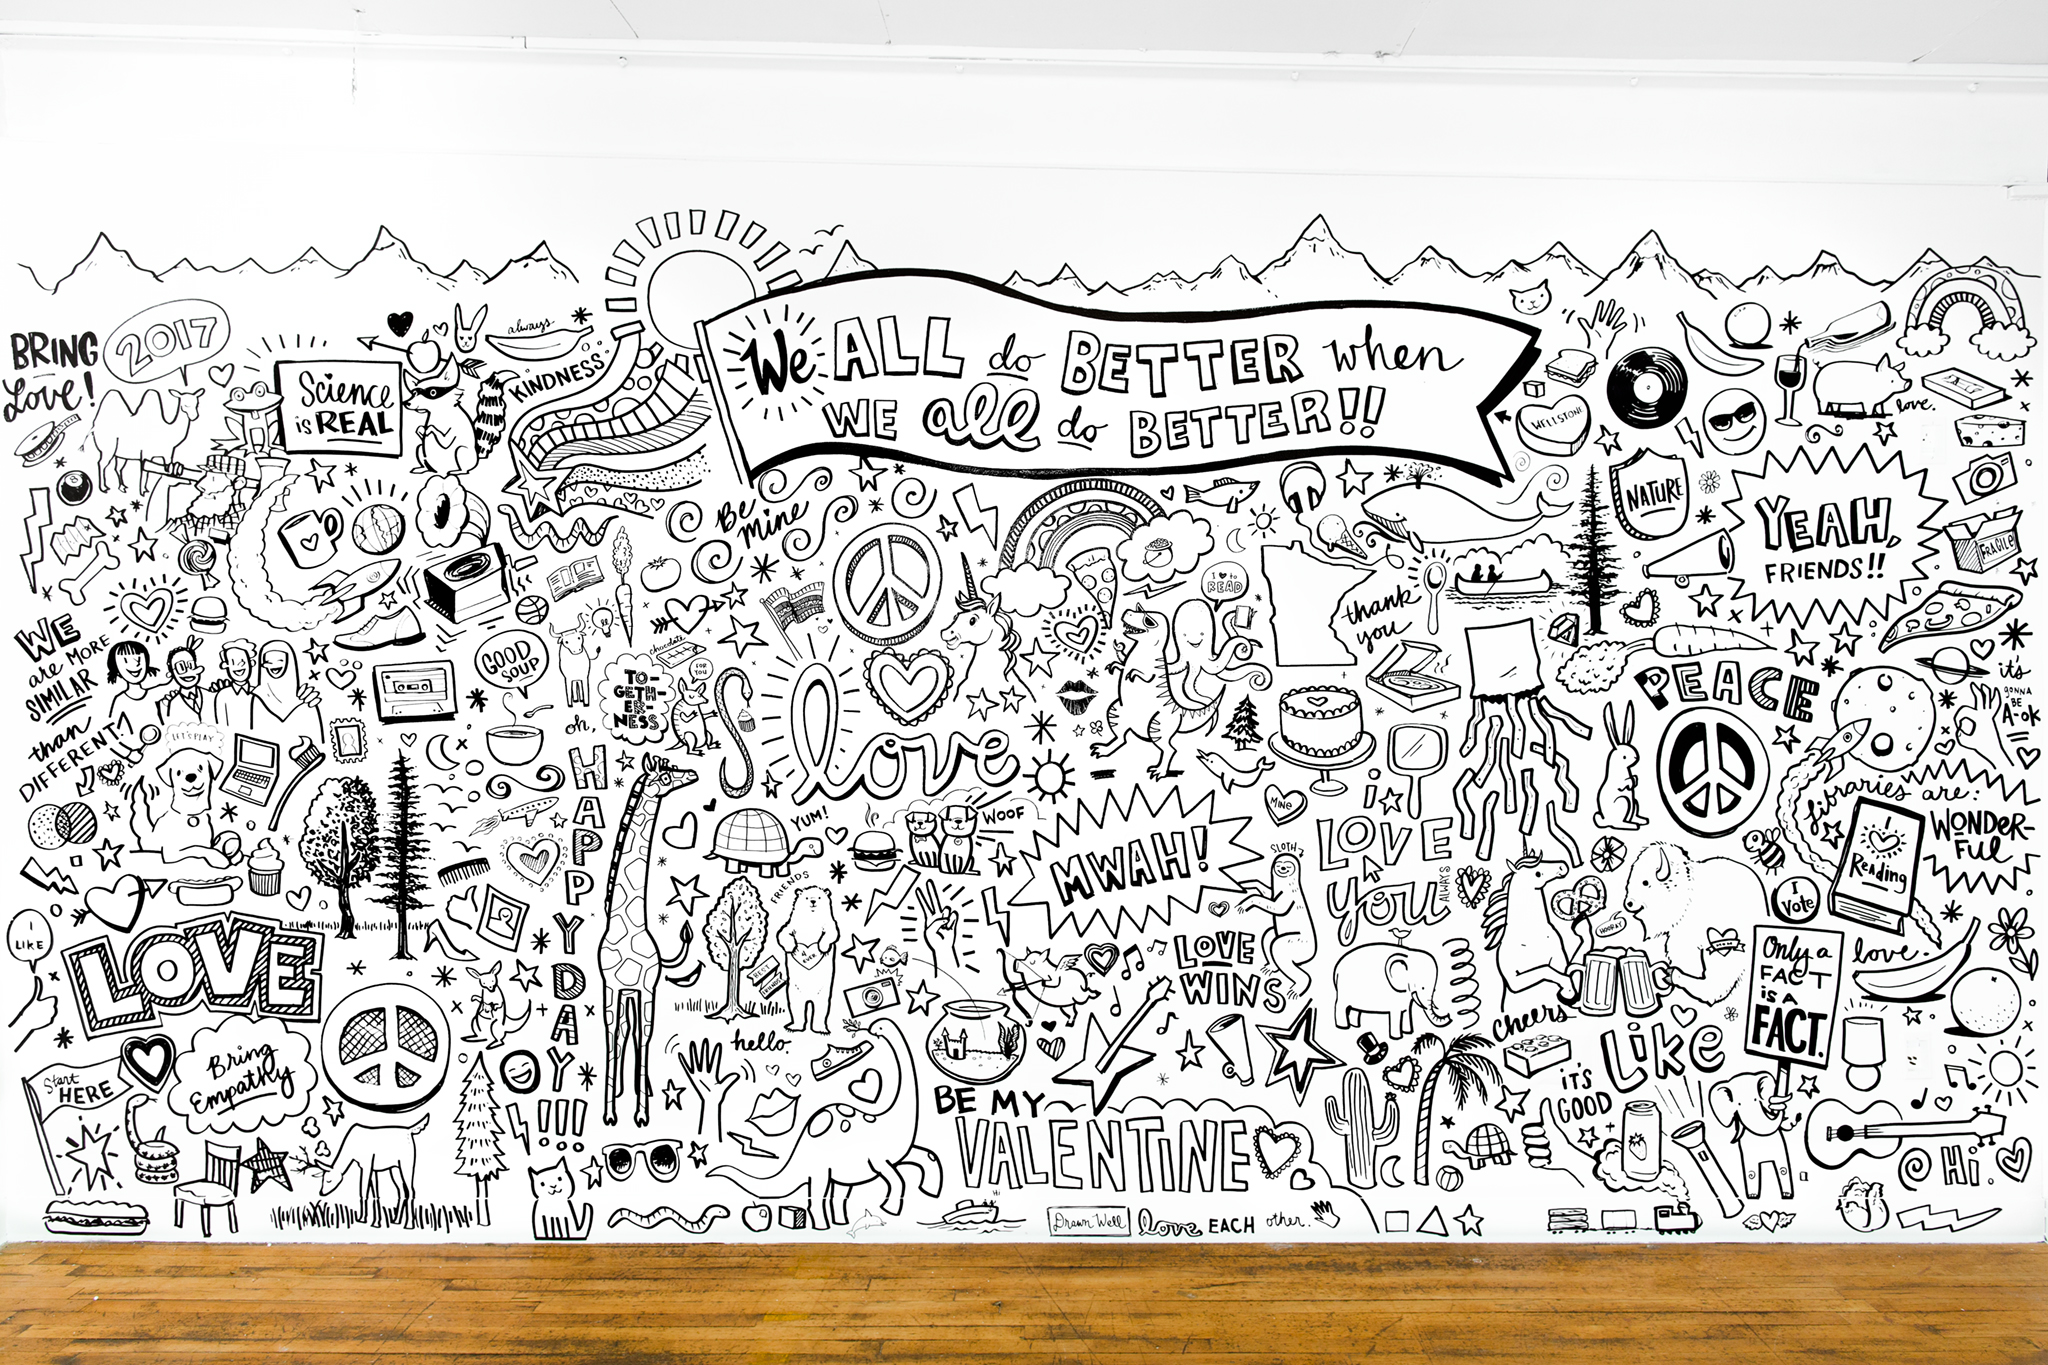 We ALL do BETTER when
WE all do BETTER!!
BRING
Love!
2017
Science
is REAL
always
KINDNESS
Be
mine
WELLSTONE
love.
NATURE
YEAH,
FRIENDS!!
FRAGILE
I ♥ to
READ
thank
you
WE
are MORE
SIMILAR
than
DIFFERENT!
LET'S PLAY
GOOD
SOUP
chocolate
FOR
YOU
TO-
GETH-
ER-
NESS
oh,
HAPPY DAY!!!
love
PEACE
it's
GONNA
BE
A-OK
libraries are:
WONDER-
FUL
I
Reading
YUM!
WOOF
MWAH!
MINE
i
LOVE
you
ALWAYS
SLOTH
FRIENDS
BEST
FRIENDS
LOVE
WINS
HOORAY
I
Vote
Only a
FACT
is a
FACT.
love.
I
LIKE
LOVE
Bring
Empathy
Start
HERE
hello.
BE MY
VALENTINE
Cheers
LIKE
IT'S
GOOD
Hi.
Hi
Drawn Well
love EACH other.